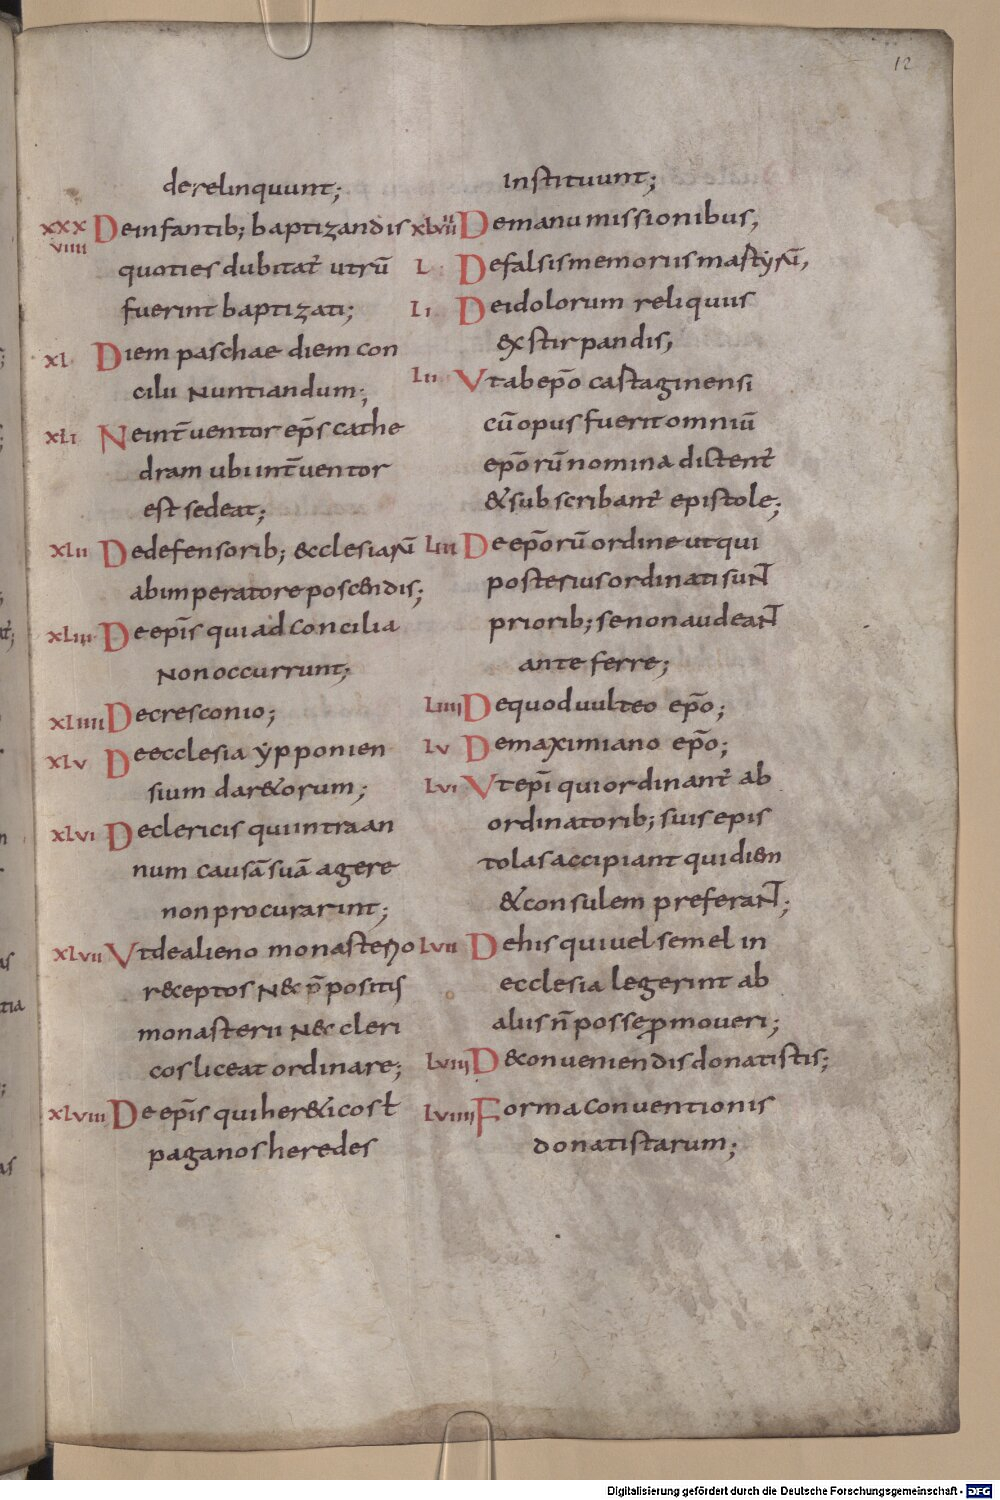 12
derelinquunt;
XXXVIIII Deinfantib; baptizandis
quoties dubitat̄ utrū
fuerint baptizati;
XL Diem paschae diem con
cilii Nuntiandum;
XLI Neint̄ventor ep̄s cathe
dram ubi int̄ventor
est sedeat;
XLII Dedefensorib; ecclesiarū
abimperatore poscendis;
XLIII De ep̄is qui ad concilia
Non occurrunt;
XLIIII Decresconio;
XLV Deecclesia ypponien
sium dar&orum;
XLVI Declericis qui intra an
num causā suā agere
non procurarint;
XLVII Vt de alieno monasterio
receptos N& p̄positis
monasterii N& cleri
cos liceat ordinare;
XLVIII De ep̄is qui her&icos ł
paganos heredes
Instituunt;
XLVIIII Demanumissionibus,
L Defalsis memoriis martyrū,
LI Deidolorum reliquiis
exstirpandis,
LII Vt ab ep̄o castaginensi
cū opus fuerit omniū
ep̄orū nomina dictent̄
& subscribant̄ epistole;
LIII De ep̄orū ordine ut qui
posterius ordinati suNT̄
priorib; se non audeaNT̄
ante ferre;
LIIII Dequoduulteo ep̄o;
LV Demaximiano ep̄o;
LVI Vt ep̄i qui ordinant̄ ab
ordinatorib; suis epis
tolas accipiant qui diem
& consulem preferaNT̄;
LVII Dehis qui uel semel in
ecclesia legerint ab
aliis n̄ posse p̱moueri;
LVIII D& conueniendis donatistis;
LVIIII Forma conuentionis
donatistarum;
Digitalisierung gefördert durch die Deutsche Forschungsgemeinschaft - DFG